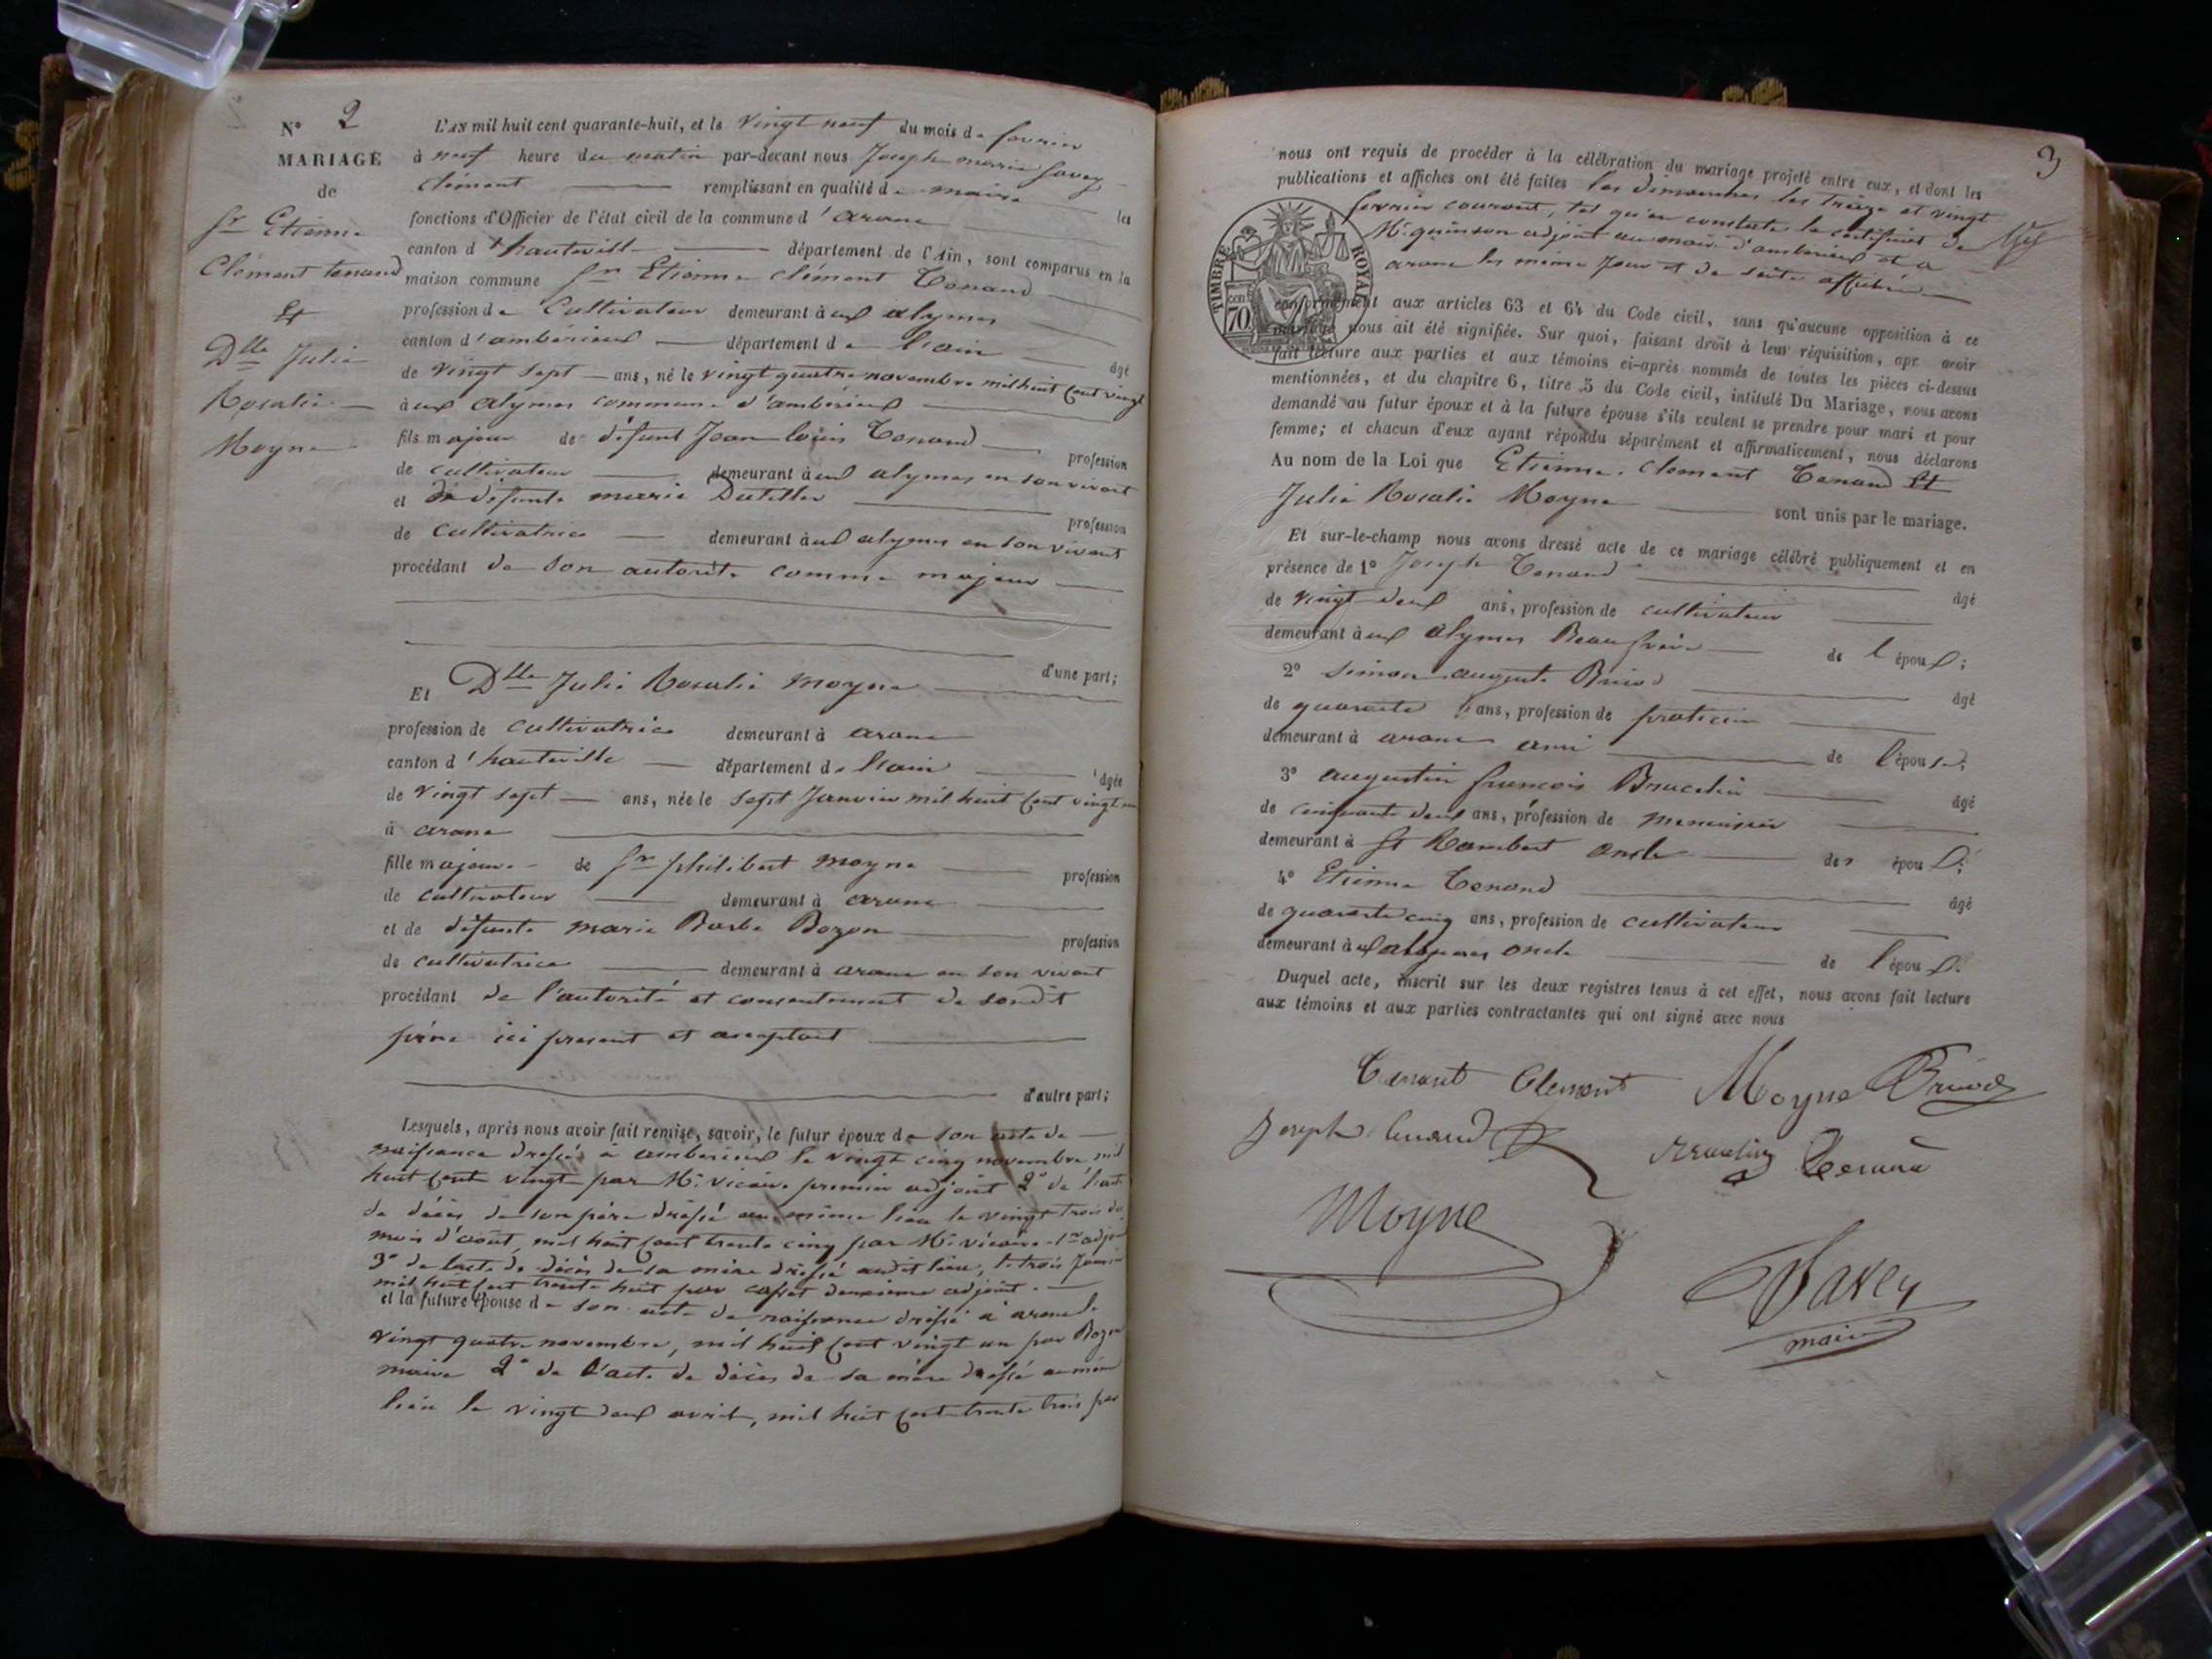 N° 2
MARIAGE
de
Sr Etienne
Clément tenand
Et
Dlle Julie
Rosalie
Moyne
L'AN mil huit cent quarante-huit, et le vingt neuf du mois de fevrier
à neuf heure du matin par-devant nous Joseph marie favey
clément remplissant en qualité de maire les
fonctions d'Officier de l'état civil de la commune d'arane
canton d'hauteville département de l'Ain, sont comparus en la
maison commune Sr Etienne clément Tenand
profession de Cultivateur demeurant à aux alymes
canton d'ambérieux département de l'ain âgé
de vingt sept ans, né le vingt quatre novembre mil huit cent vingt
à aux alymes commune d'ambérieux
fils majeur de défunt Jean louis Tenand profession
de cultivateur demeurant à aux alymes en son vivant
et de défunte marie Dutiller profession
de cultivatrice demeurant à aux alymes en son vivant
procédant de son autorité comme majeur
d'une part;
Et Dlle Julie Rosalie moyne
profession de cultivatrice demeurant à arane
canton d'hauteville département de l'ain âgée
de vingt sept ans, née le sept Janvier mil huit cent vingt un
à arane
fille majeure de Sr philibert moyne profession
de cultivateur demeurant à arane
et de défunte marie Barbe Bozon profession
de cultivatrice demeurant à arane en son vivant
procédant de l'autorité et consentement de sondit
père ici present et acceptant
d'autre part;
Lesquels, après nous avoir fait remise, savoir, le futur époux de son acte de
naissance dressé à ambérieux le vingt cinq novembre mil
huit cent vingt par Mr vicaire premier adjoint 2° de l'acte
de décès de son père dressé au même lieu le vingt trois du
mois d'août, mil huit cent trente cinq par Mr vicaire 1er adjoint
3° de l'acte de décès de sa mère dressé audit lieu, le trois Janvier
mil huit cent trente huit par deuxième adjoint.
et la future épouse de son acte de naissance dressé à arane le
vingt quatre novembre, mil huit cent vingt un par Bozon
maire 2° de l'acte de décès de sa mère dressé au même
lieu le vingt deux avril, mil huit cent trente trois par
3
nous ont requis de procéder à la célébration du mariage projeté entre eux, et dont les
publications et affiches ont été faites les dimanches les treize et vingt
fevrier courant, tel qu'en constate le certificat de
Mr quinson adjoint au maire d'ambérieux et a
arane les même Jour et de suite affiché
TIMBRE ROYAL
70
conformément aux articles 63 et 64 du Code civil, sans qu'aucune opposition à ce
mariage nous ait été signifiée. Sur quoi, faisant droit à leur réquisition, apr. avoir
fait lecture aux parties et aux témoins ci-après nommés de toutes les pièces ci-dessus
mentionnées, et du chapitre 6, titre 5 du Code civil, intitulé Du Mariage, nous avons
demandé au futur époux et à la future épouse s'ils veulent se prendre pour mari et pour
femme; et chacun d'eux ayant répondu séparément et affirmativement, nous déclarons
Au nom de la Loi que Etienne Clement Tenand Et
Julie Rosalie Moyne sont unis par le mariage.
Et sur-le-champ nous avons dressé acte de ce mariage célébré publiquement et en
présence de 1° Joseph Tenand âgé
de vingt deux ans, profession de cultivateur
demeurant à aux alymes Beau frère de l'époux;
2° simon auguste Brivod âgé
de quarante ans, profession de praticien
demeurant à arane ami de l'épouse;
3° augustin francois Brucelin âgé
de cinquante deux ans, profession de menuisier
demeurant à St Rambert oncle des époux;
4° Etienne Tenand âgé
de quarante cinq ans, profession de cultivateur
demeurant à aux alymes oncle de l'époux.
Duquel acte, inscrit sur les deux registres tenus à cet effet, nous avons fait lecture
aux témoins et aux parties contractantes qui ont signé avec nous
Tenant Clement Moyne Brivod
Joseph Tenand Brucelin Tenand
Moyne
Favey
maire